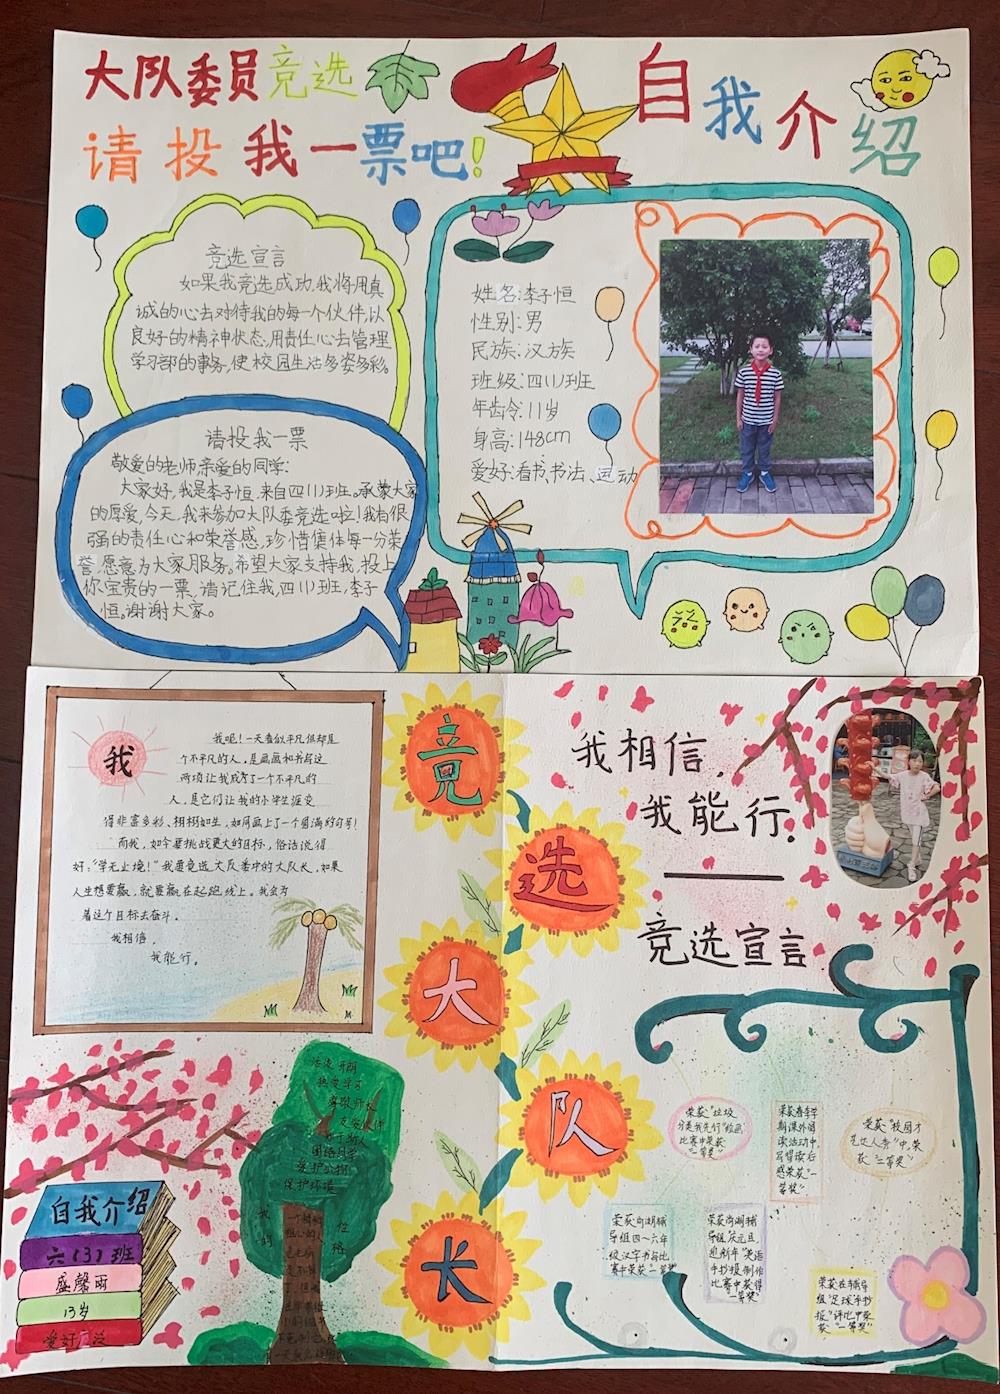 大队委员竞选
请投我一票吧!
自我介绍
竞选宣言
如果我竞选成功,我将用真
诚的心去对待我的每一个伙伴,以
良好的精神状态,用责任心去管理
学习部的事务,使校园生活多姿多彩。
姓名:李子恒
性别:男
民族:汉族
班级:四(1)班
年龄:11岁
身高:148cm
爱好:看书、书法、运动
请投我一票
敬爱的老师亲爱的同学:
大家好,我是李子恒,来自四(1)班。承蒙大家
的厚爱,今天,我来参加大队委竞选啦!我有很
强的责任心和荣誉感,珍惜集体每一分荣
誉,愿意为大家服务。希望大家支持我,投上
你宝贵的一票、请记住我,四(1)班,李子
恒。谢谢大家。
我
我呢!一天看似平凡但却是
个不平凡的人,是画画和书写这
两项让我成为了一个不平凡的
人,是它们让我的小学生涯变
得非富多彩、栩栩如生,如同画上了一个圆满的句号!
而我,如今要挑战更大的目标,俗话说得
好:“学无止境!”我要竞选大队委中的大队长,如果
人生想要赢,就要赢在起跑线上。我会为
着这个目标去奋斗。
我相信,
我能行。
竞
选
大
队
长
我相信,
我能行.
竞选宣言
活泼开朗
热爱学习
尊敬师长
友爱伙伴
乐于助人
团结同学
爱护公物
保护环境
我的
性格
自我介绍
六(3)班
盛馨雨
13岁
爱好广泛
荣获“垃圾
分类我先行”绘画
比赛中荣获
“一等奖”
荣获春季学
期课外阅
读活动中,
写得读后
感荣获“一
等奖”.
荣获“校园才
艺达人秀”中,荣
获“二等奖”
荣获尚湖辅
导组四~六年
级汉字书写比
赛中荣获“一等奖”
荣获尚湖辅
导组“庆元旦,
迎新年”英语
手抄报制作
比赛中获得
“一等奖”
荣获在辅导
组“足球手抄
报”评比中荣
获“一等奖”